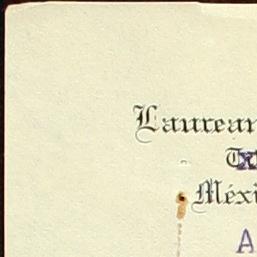 Laurean
Méxi
A